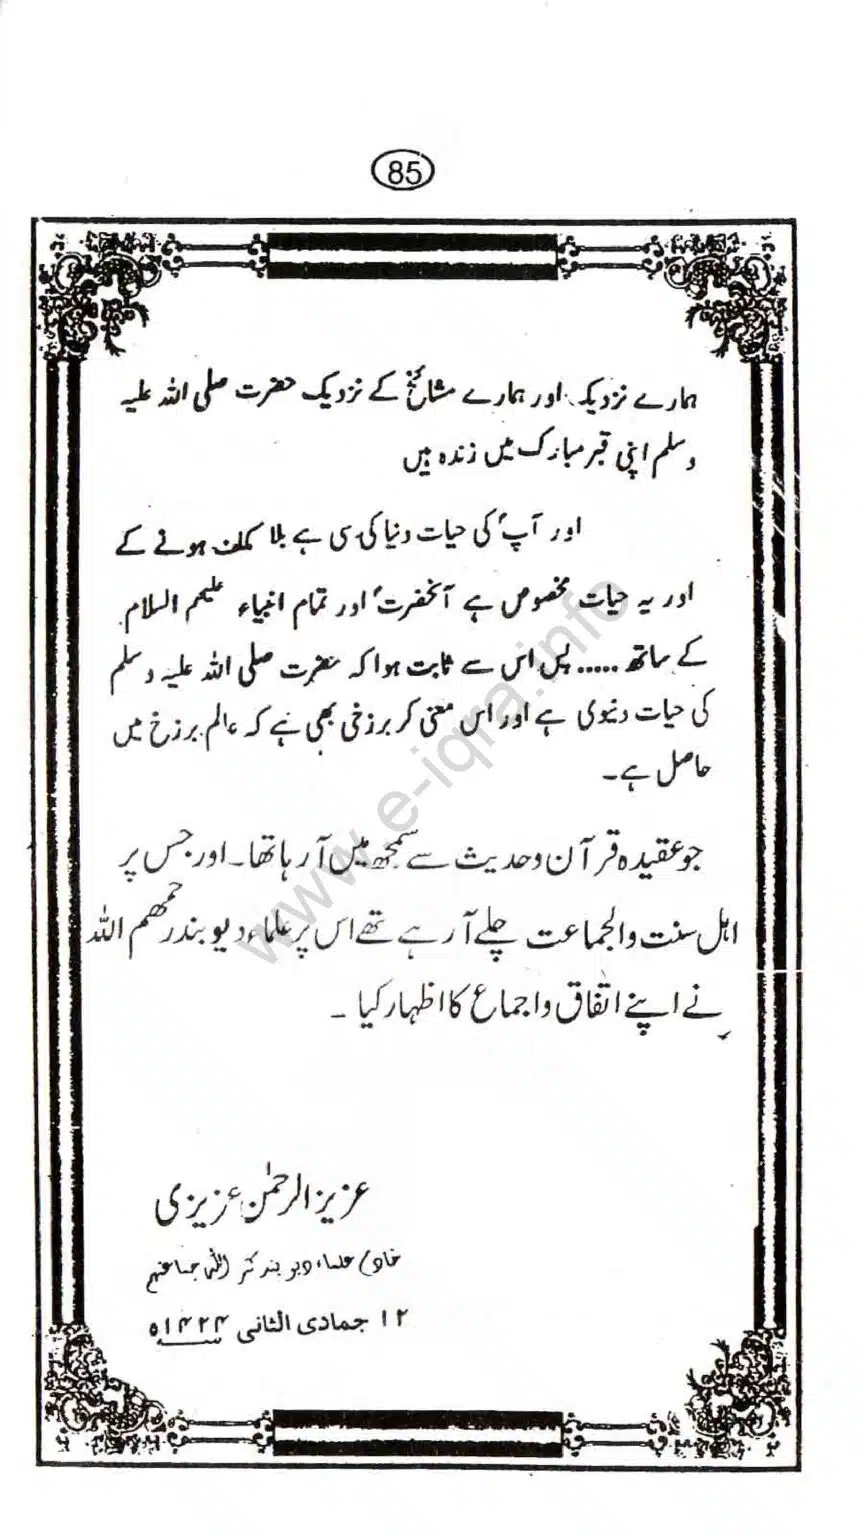 85
ہمارے نزدیک اور ہمارے مشائخ کے نزدیک حضرت صلی اللہ علیہ
وسلم اپنی قبر مبارک میں زندہ ہیں
اور آپؐ کی حیات دنیا کی سی ہے بلا مکلف ہونے کے
اور یہ حیات مخصوص ہے آنحضرتؐ اور تمام انبیاء علیہم السلام
کے ساتھ ..... پس اس سے ثابت ہوا کہ حضرت صلی اللہ علیہ وسلم
کی حیات دنیوی ہے اور اس معنی کر برزخی بھی ہے کہ عالم برزخ میں
حاصل ہے۔
جو عقیدہ قرآن وحدیث سے سمجھ میں آ رہا تھا۔ اور جس پر
اہل سنت والجماعت چلے آ رہے تھے اس پر علماء دیوبند رحمھم اللہ
نے اپنے اتفاق واجماع کا اظہار کیا ۔
عزیز الرحمٰن عزیزی
خادم علماء دیوبند کثر اللہ جماعتہم
۱۲ جمادی الثانی ۱۴۲۴ھ
www.e-iqra.info